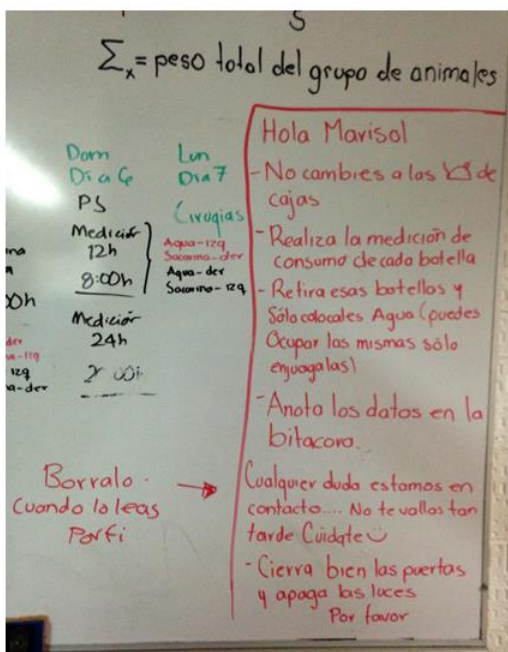 S
Σx = peso total del grupo de animales
Dom
Día 6
PS
Medición
12h
8:00h
Medición
24h
Lun
Dia 7
Cirugias
Agua-izq
Sacarina-der
Agua-der
Sacarina-izq
00h
der
izq
a-der
Borralo
Cuando lo leas
Porfi
Hola Marisol
- No cambies a las de
cajas
- Realiza la medición de
consumo de cada botella
- Retira esas botellas y
Sólo colocales Agua (puedes
Ocupar las mismas sólo
enjuagalas)
- Anota los datos en la
bitacora.
Cualquier duda estamos en
contacto.... No te vallas tan
tarde Cuidate
- Cierra bien las puertas
y apaga las luces
Por favor